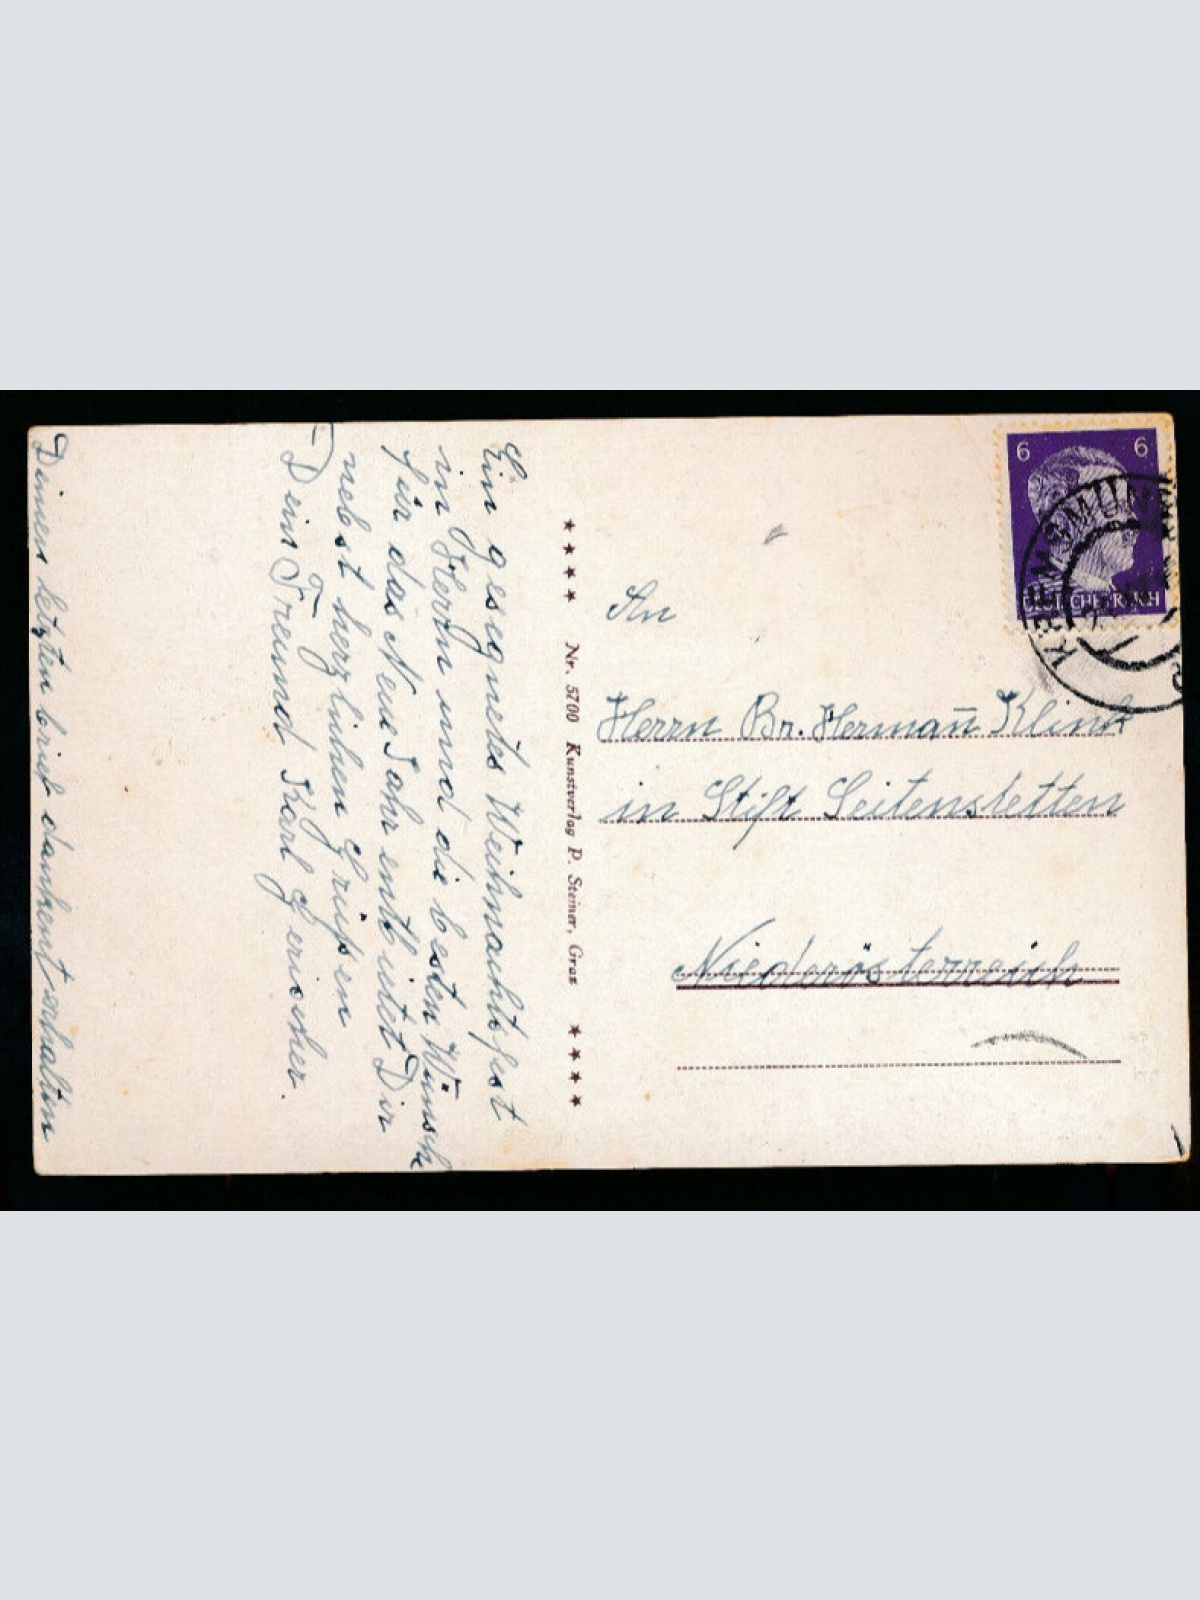 Ein gesegnetes Weihnachtsfest
im Herrn und die besten Wünsche
für das Neue Jahr entbietet Dir
nebst herzlichen Grüßen
Dein Freund Karl
Deinen letzten brief dankent erhalten
★★★★ Nr. 5700 Kunstverlag P. Steiner, Graz ★★★★
6 6
DEUTSCHES REICH
KREMSMÜN
An
Herrn Br. Herman̄ Klink
in Stift Seitenstetten
Niederösterreich